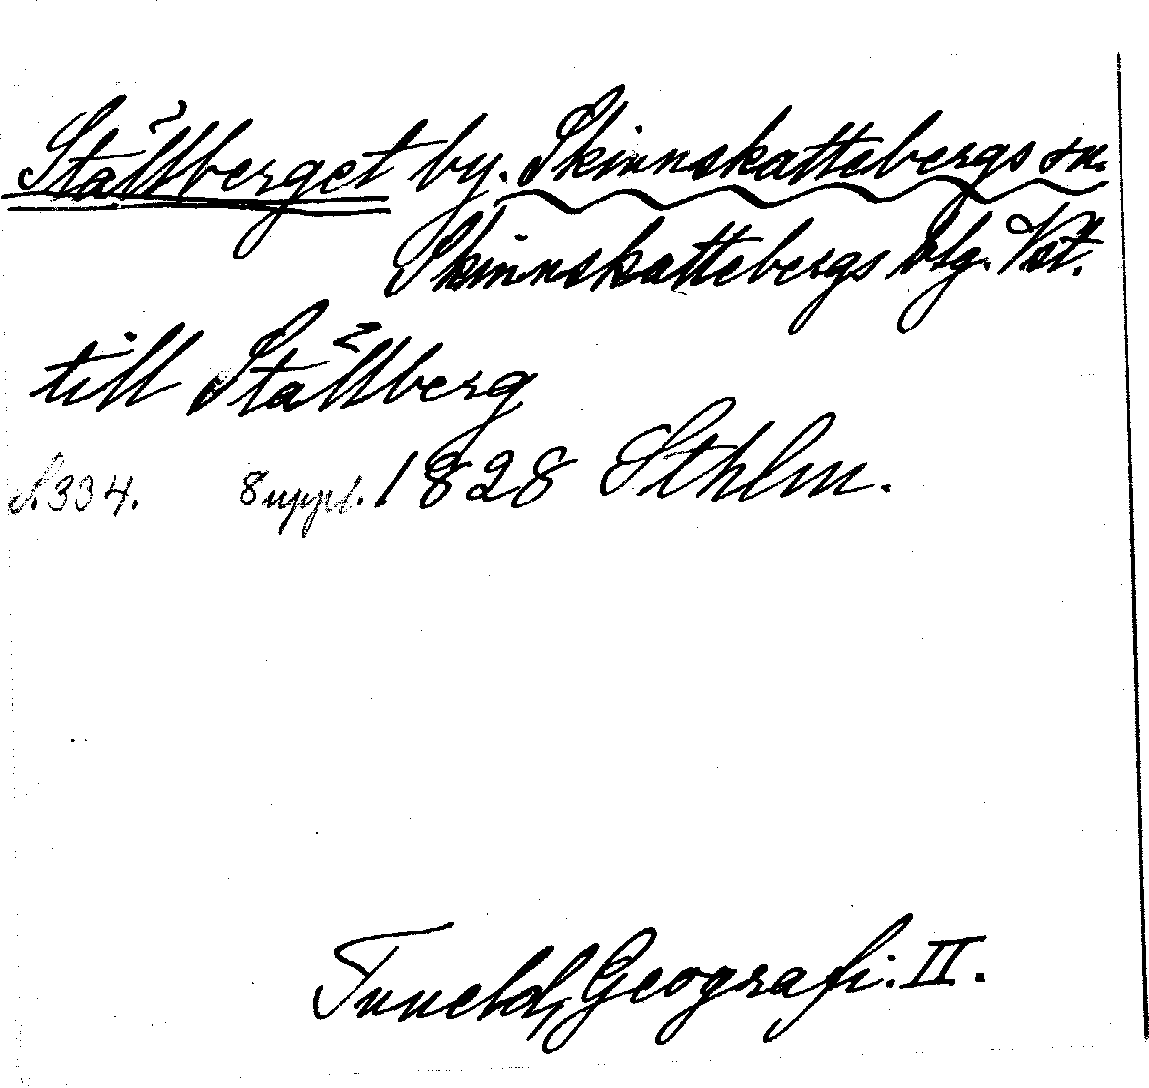 Ställberget by. Skinnskattebergs sn.
Skinnskattebergs blg. Vst.
till Ställberg
S. 334. Suppl. 1828 Sthlm.
Tuneld, Geografi. II.